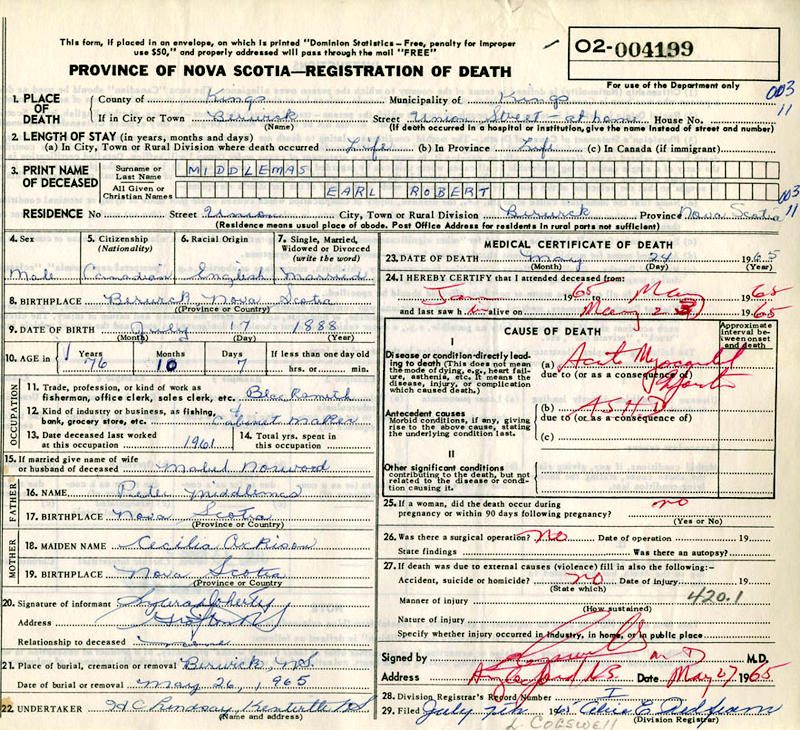 This form, if placed in an envelope, on which is printed "Dominion Statistics – Free, penalty for improper
use $50," and properly addressed will pass through the mail "FREE"
O2-004199
For use of the Department only
PROVINCE OF NOVA SCOTIA—REGISTRATION OF DEATH
003
11
1. PLACE OF DEATH County of Kings Municipality of Kings
If in City or Town Berwick Street Union Street – at home House No.
(Name) (If death occurred in a hospital or institution, give the name instead of street and number)
2. LENGTH OF STAY (in years, months and days)
(a) In City, Town or Rural Division where death occurred Life (b) In Province Life (c) In Canada (if immigrant)
3. PRINT NAME OF DECEASED Surname or Last Name MIDDLEMAS
All Given or Christian Names EARL ROBERT
003
11
RESIDENCE No Street Union City, Town or Rural Division Berwick Province Nova Scotia
(Residence means usual place of abode. Post Office Address for residents in rural parts not sufficient)
4. Sex 5. Citizenship (Nationality) 6. Racial Origin 7. Single, Married, Widowed or Divorced (write the word)
Male Canadian English Married
8. BIRTHPLACE Berwick Nova Scotia
(Province or Country)
9. DATE OF BIRTH July 17 1888
(Month) (Day) (Year)
10. AGE in Years Months Days If less than one day old
76 10 7 hrs. or min.
OCCUPATION
11. Trade, profession, or kind of work as fisherman, office clerk, sales clerk, etc. Blacksmith
12. Kind of industry or business, as fishing, bank, grocery store, etc. & Cabinet Maker
13. Date deceased last worked at this occupation 1961 14. Total yrs. spent in this occupation
15. If married give name of wife or husband of deceased Mabel Norwood
FATHER
16. NAME Peter Middlemas
17. BIRTHPLACE Nova Scotia
(Province or Country)
MOTHER
18. MAIDEN NAME Cecilia
19. BIRTHPLACE Nova Scotia
(Province or Country)
20. Signature of informant Doherty
Address
Relationship to deceased
21. Place of burial, cremation or removal Berwick, N.S.
Date of burial or removal May 26, 1965
22. UNDERTAKER H C Lindsay, Kentville NS
(Name and address)
MEDICAL CERTIFICATE OF DEATH
23. DATE OF DEATH May 24 1965
(Month) (Day) (Year)
24. I HEREBY CERTIFY that I attended deceased from:
Jan 1965 to May 1965
and last saw him alive on May 23 1965
CAUSE OF DEATH Approximate interval between onset and death
I
Disease or condition directly leading to death (This does not mean the mode of dying, e.g., heart failure, asthenia, etc. It means the disease, injury, or complication which caused death.)
(a) Acute Myocardial Infarction
due to (or as a consequence of)
Antecedent causes
Morbid conditions, if any, giving rise to the above cause, stating the underlying condition last.
(b) A.S.H.D
due to (or as a consequence of)
(c)
II
Other significant conditions
contributing to the death, but not related to the disease or condition causing it.
25. If a woman, did the death occur during pregnancy or within 90 days following pregnancy? no
(Yes or No)
26. Was there a surgical operation? No Date of operation 19
State findings Was there an autopsy?
27. If death was due to external causes (violence) fill in also the following:–
Accident, suicide or homicide? no Date of injury 19
(State which)
420.1
Manner of injury
(How sustained)
Nature of injury
Specify whether injury occurred in industry, in home, or in public place
Signed by M D M.D.
Address N.S. Date May 27 1965
28. Division Registrar's Record Number I
29. Filed July 7th 1965
(Division Registrar)
L. COGSWELL